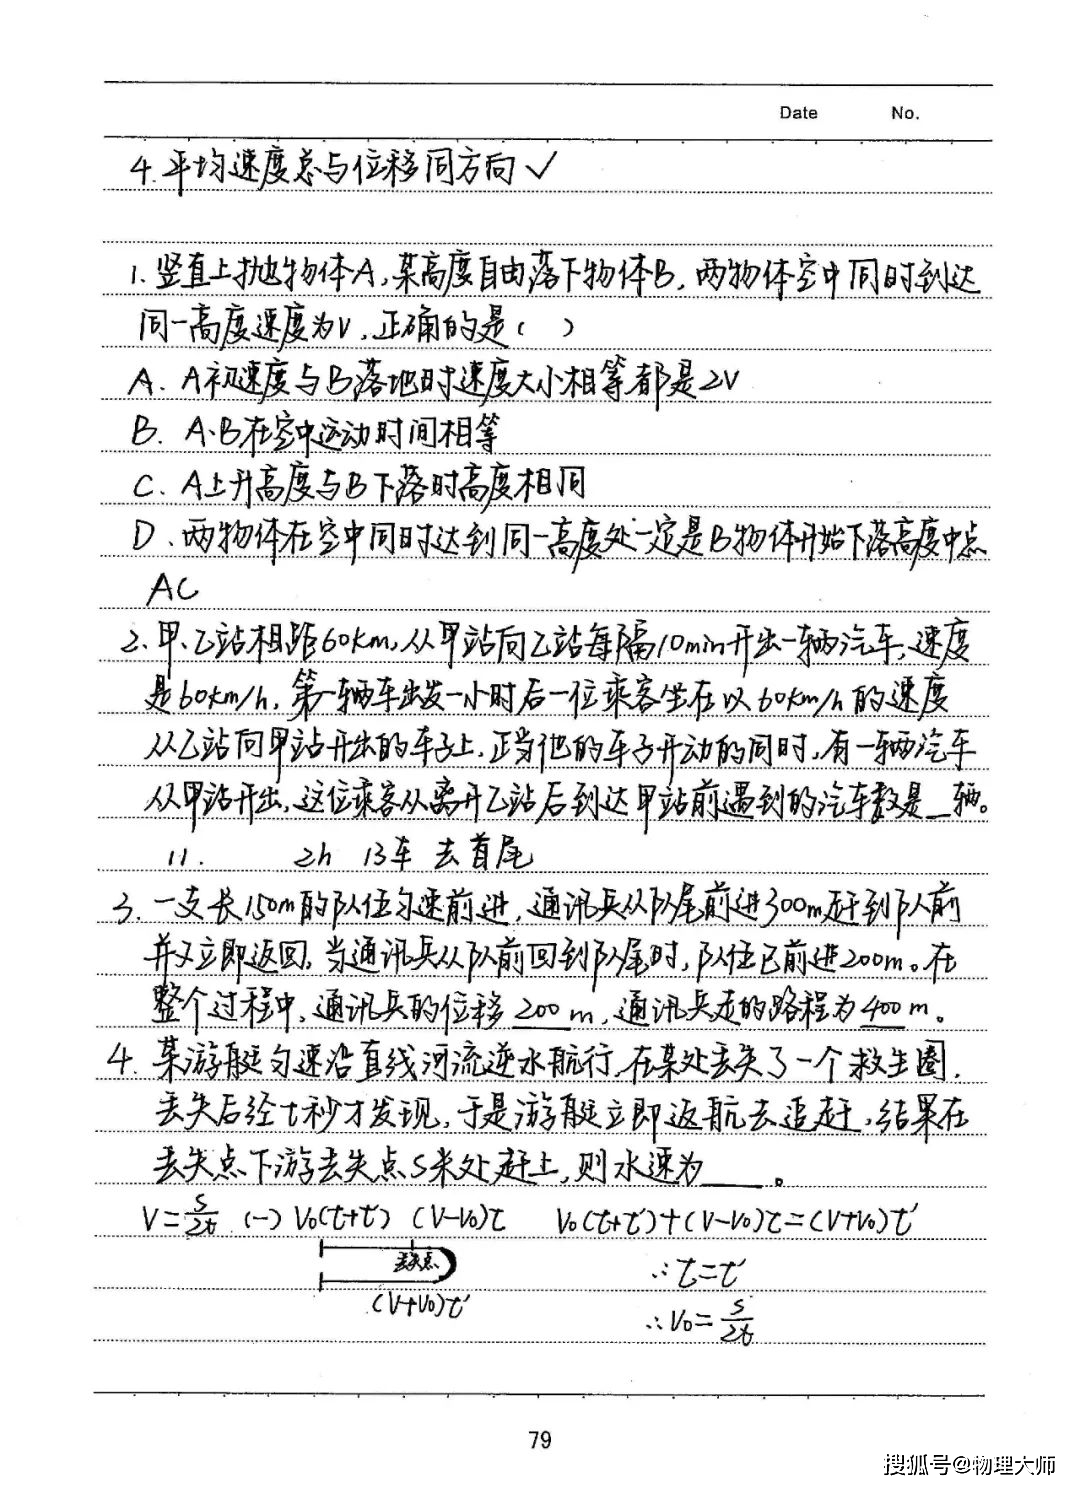 Date No.
4.平均速度总与位移同方向✓
1.竖直上抛物体A,某高度自由落下物体B,两物体空中同时到达
同一高度速度为V,正确的是( )
A.A初速度与B落地时速度大小相等都是2V
B.A.B在空中运动时间相等
C.A上升高度与B下落时高度相同
D.两物体在空中同时达到同一高度处一定是B物体开始下落高度中点
AC
2.甲、乙站相距60km,从甲站向乙站每隔10min开出一辆汽车,速度
是60km/h,第一辆车出发一小时后一位乘客坐在以60km/h的速度
从乙站向甲站开出的车子上,正当他的车子开动的同时,有一辆汽车
从甲站开出,这位乘客从离开乙站后到达甲站前遇到的汽车数是_辆。
11. 2h 13车 去首尾
3.一支长150m的队伍匀速前进,通讯兵从队尾前进300m赶到队前
并又立即返回,当通讯兵从队前回到队尾时,队伍已前进200m。在
整个过程中,通讯兵的位移200m,通讯兵走的路程为400m。
4.某游艇匀速沿直线河流逆水航行,在某处丢失了一个救生圈,
丢失后经t秒才发现,于是游艇立即返航去追赶,结果在
丢失点下游丢失点S米处赶上,则水速为____。
V=S/2t (一) V₀(t+t') (V-V₀)t V₀(t+t')+(V-V₀)t=(V+V₀)t'
丢失点 ∴t=t'
(V+V₀)t' ∴V₀=S/2t
79
搜狐号@物理大师